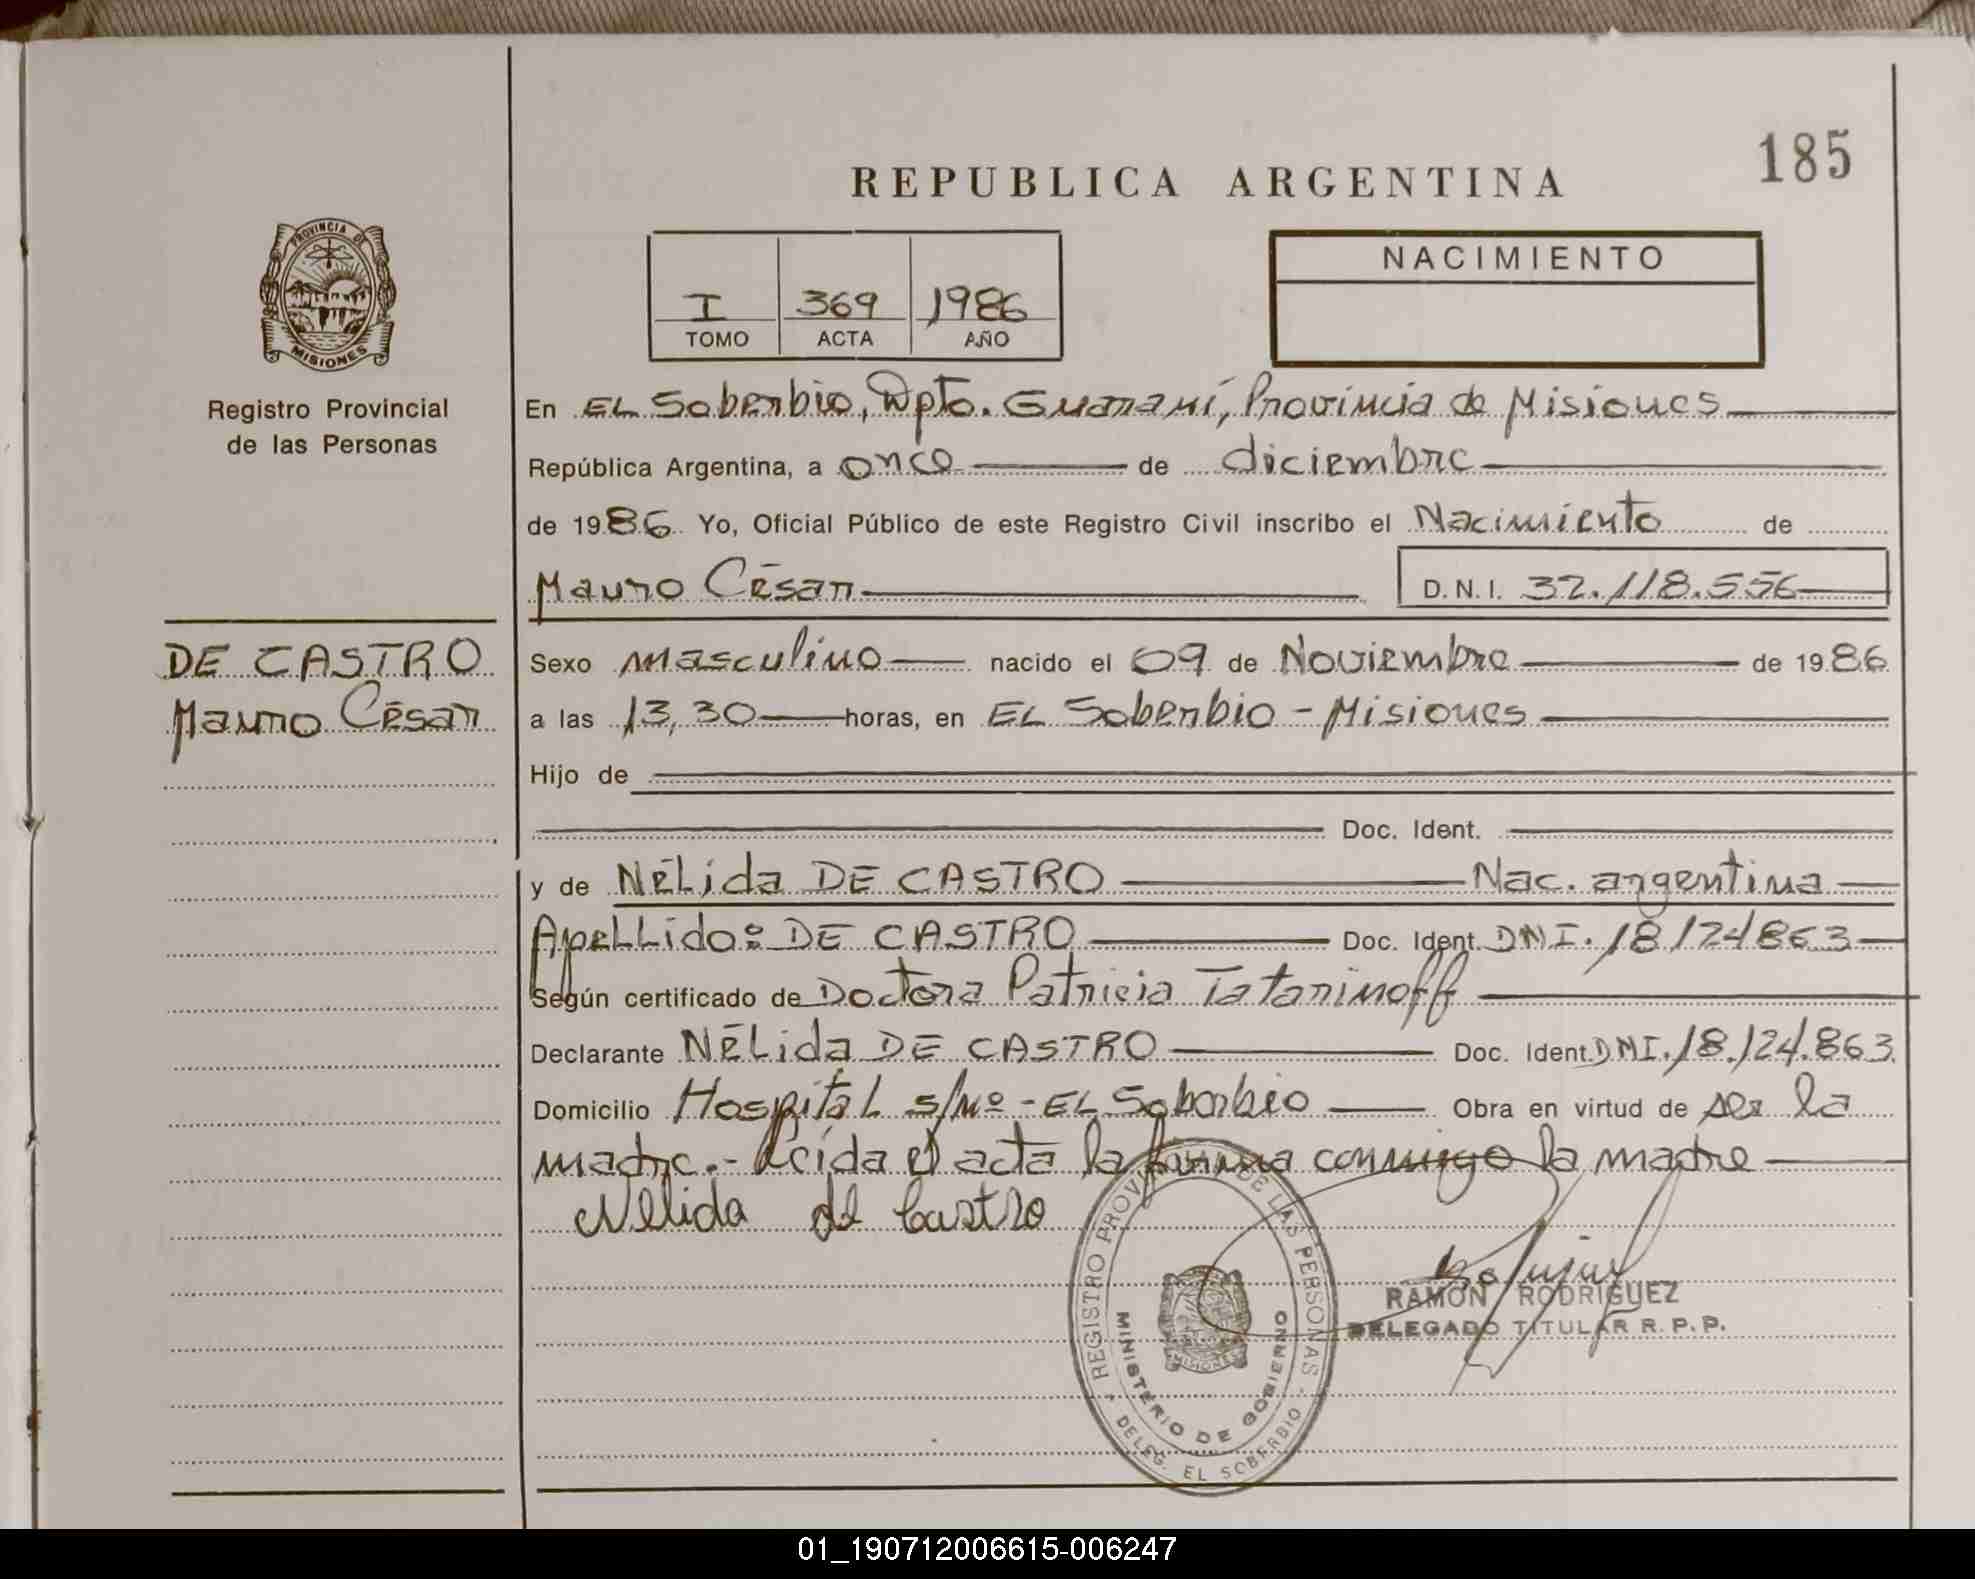 185
REPUBLICA ARGENTINA
PROVINCIA DE
MISIONES
Registro Provincial
de las Personas
I 369 1986
TOMO ACTA AÑO
NACIMIENTO
En EL Soberbio, Dpto. Guaraní, Provincia de Misiones
República Argentina, a once de diciembre
de 1986 Yo, Oficial Público de este Registro Civil inscribo el Nacimiento de
Mauro César D.N.I. 32.118.556
DE CASTRO
Mauro César
Sexo masculino nacido el 09 de Noviembre de 1986
a las 13,30 horas, en EL Soberbio - Misiones
Hijo de
Doc. Ident.
y de Nélida DE CASTRO Nac. argentina
Apellido: DE CASTRO Doc. Ident. DNI. 18124863
Según certificado de Doctora Patricia Tatarinoff
Declarante Nélida DE CASTRO Doc. Ident. DNI. 18.124.863
Domicilio Hospital s/Nº - EL Soberbio Obra en virtud de ser la
madre.- Leída el acta la firma conmigo la madre
Nelida de Castro
REGISTRO PROVINCIAL DE LAS PERSONAS
MINISTERIO DE GOBIERNO
MISIONES
DELEG. EL SOBERBIO
RAMON RODRIGUEZ
DELEGADO TITULAR R.P.P.
01_190712006615-006247